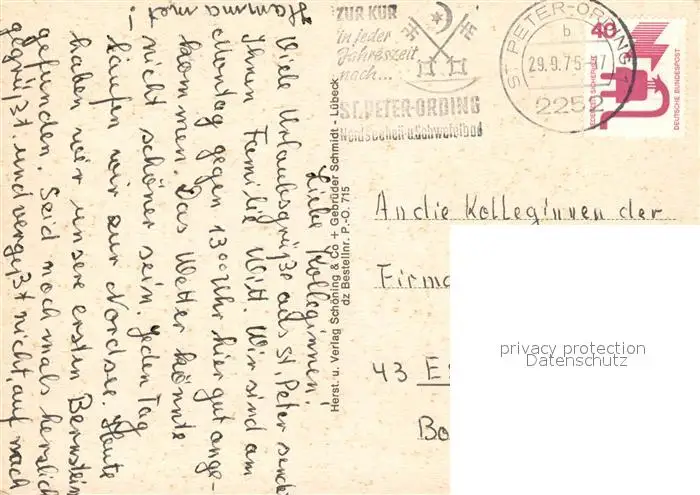 Liebe Kolleginnen!
Viele Urlaubsgrüße aus St. Peter sendet
Ihnen Familie Witt. Wir sind am
Montag gegen 13 00 Uhr hier gut ange-
kommen. Das Wetter könnte
nicht schöner sein. Jeden Tag
laufen wir zur Nordsee. Heute
haben wir unsere ersten Bernstein
gefunden. Seid nochmals herzlich
gegrüßt und vergeßt nicht, auf nach
Hamm
Herst. u. Verlag Schöning & Co + Gebrüder Schmidt - Lübeck
dz Bestellnr. P.-O. 715
ZUR KUR
in jeder
Jahreszeit
nach...
ST. PETER-ORDING
Nordseeheil- u. Schwefelbad
ST PETER-ORDING 1
b
29.9.75-17
2252
40
JEDERZEIT SICHERHEIT
DEUTSCHE BUNDESPOST
An die Kolleginnen der
Firma
43 Es
Bo
privacy protection
Datenschutz